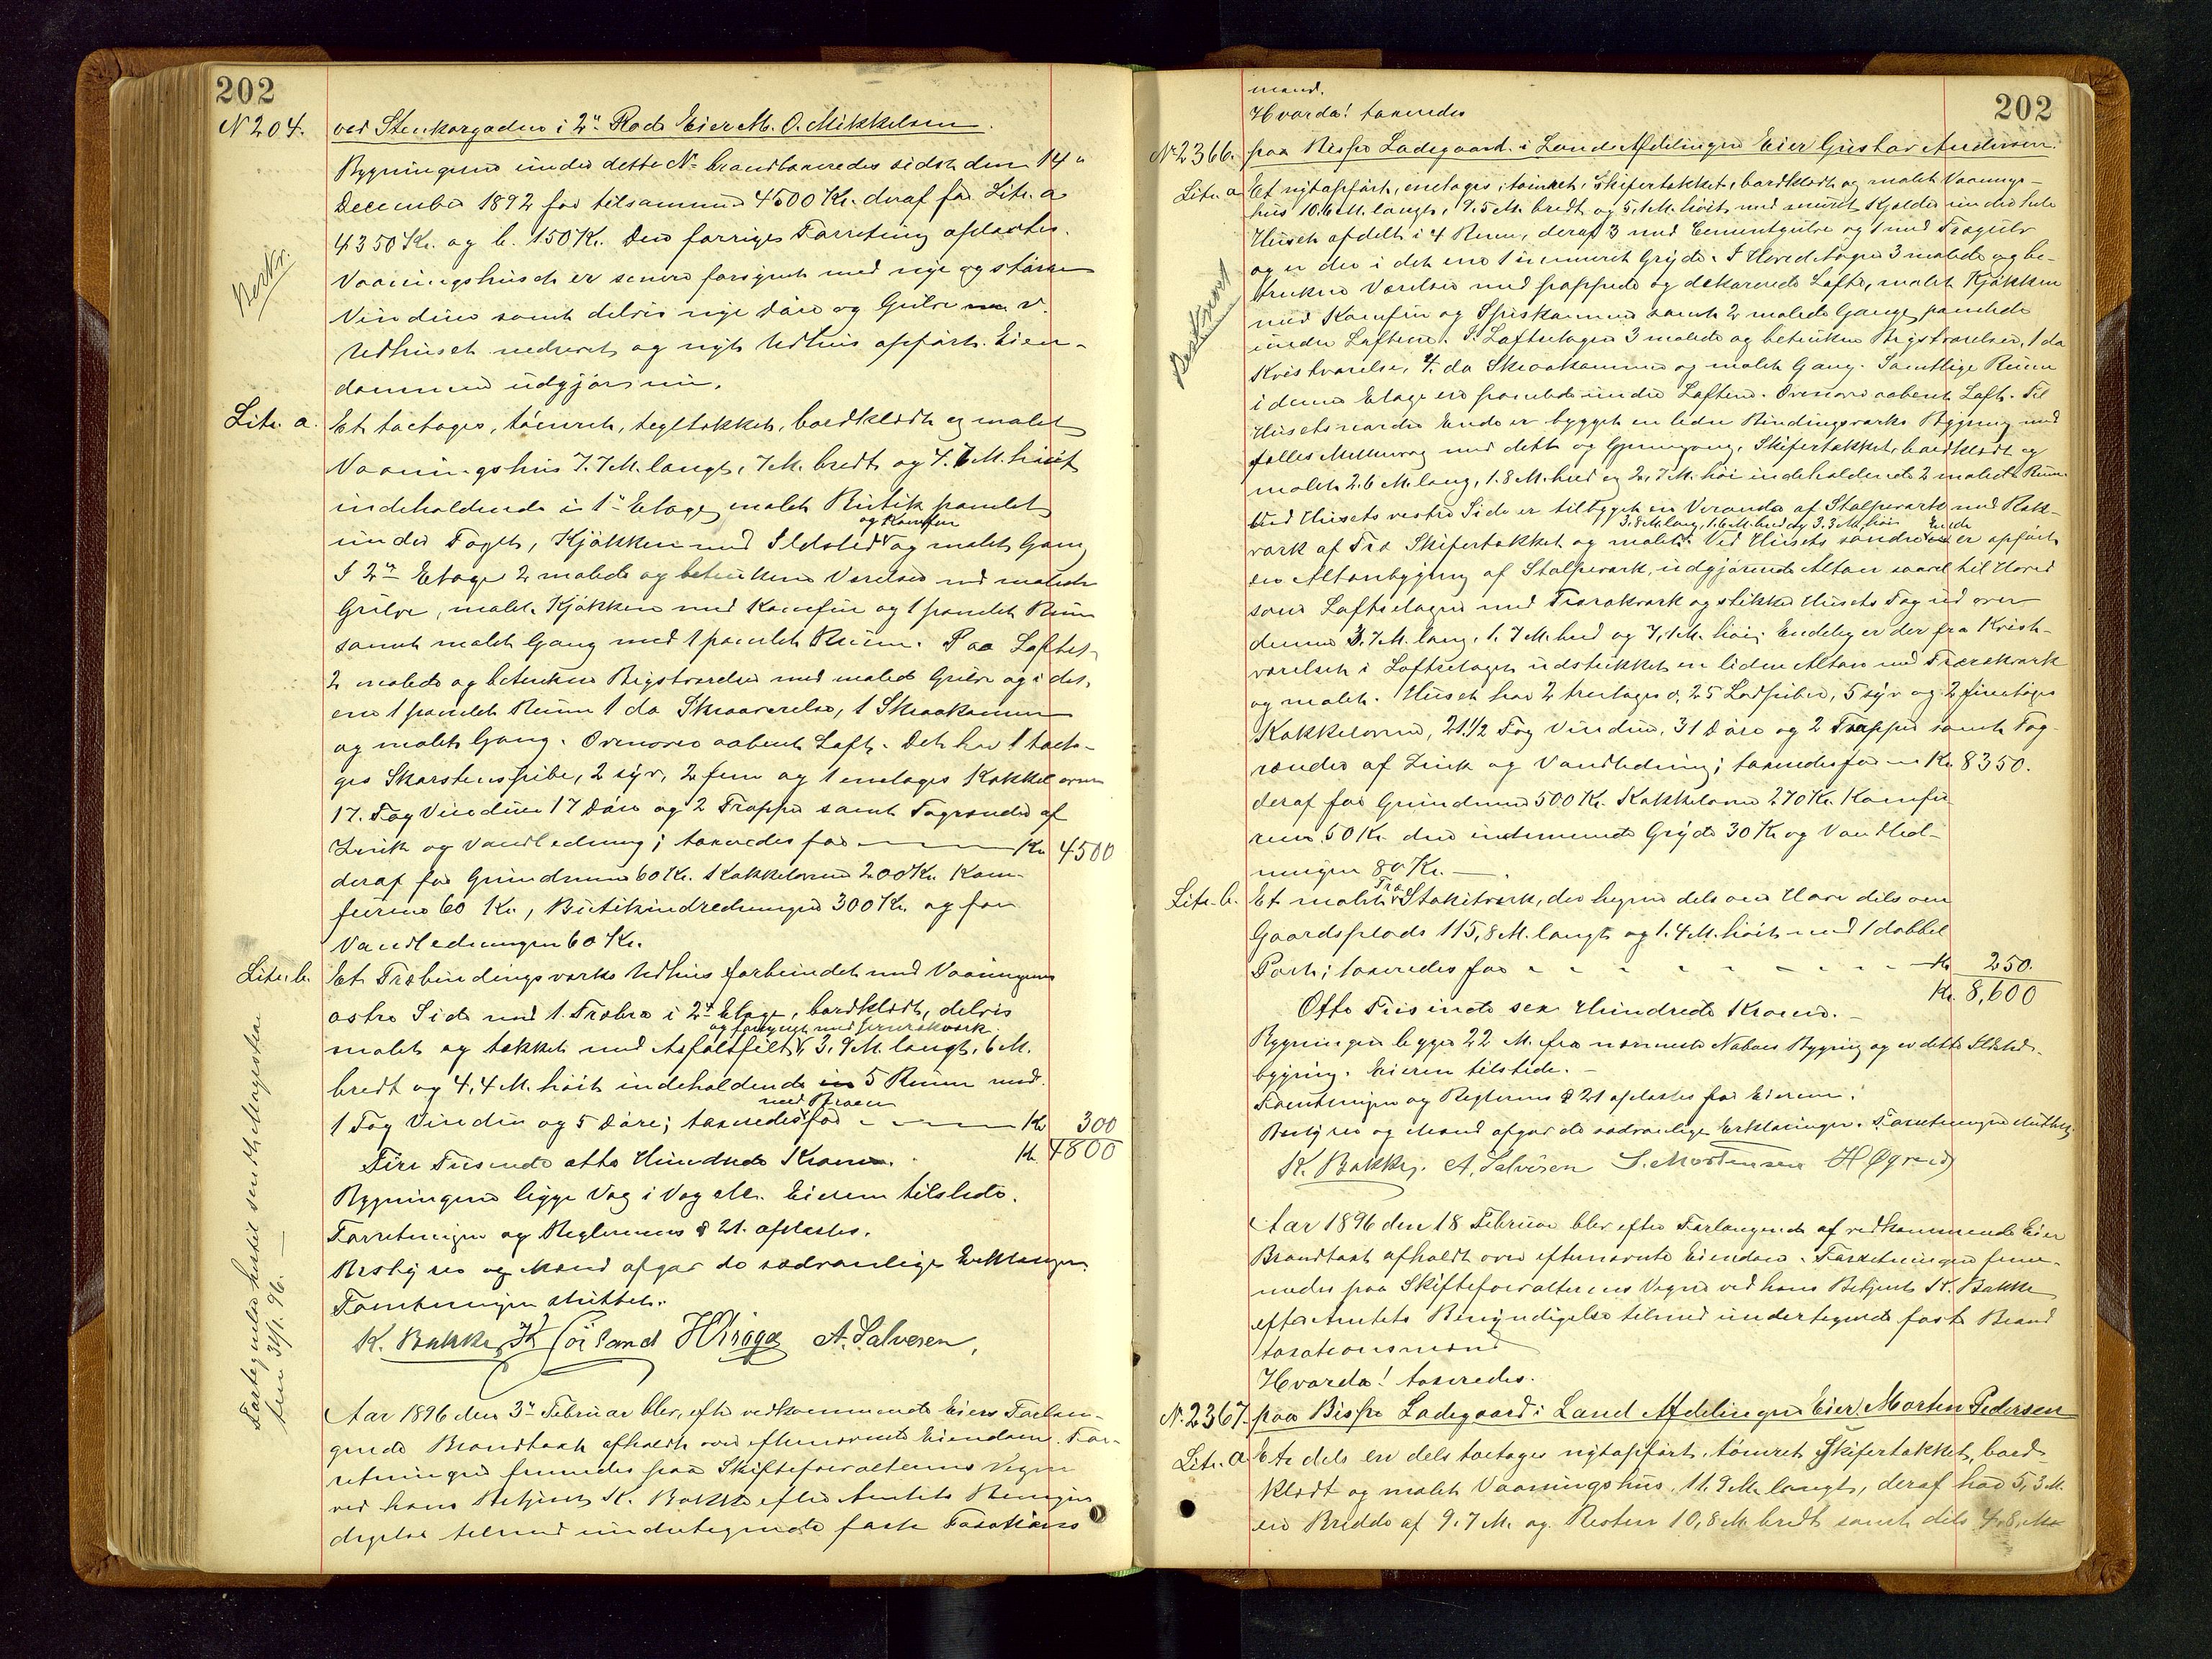 202
N 204. ved Stenkargaden i 2n Rode Eier M. O. Mikkelsen.
Bygningerne under dette No brandtaxeredes sidst den 14n
December 1892 for tilsammen 4500 Kr. deraf for Litr. a
4350 Kr. og b. 150 Kr. Den forrige Forretning oplæstes.
Bestr.
Vaaningshuset er senere forsynet med nye og større
Vinduer samt delvis nye Døre og Gulve
Udhuset nedrevet og nyt Udhus opført. Eien-
dommen udgjør nu.
Litr. a. Et toetages, tømret, tegltækket, bordklædt og malet
Vaaningshus 7.7 M. langt, 7 M. bredt og 7.7 M. høit
indeholdende i 1n Etage malet Butik panelet
og Komfur
under Taget, Kjøkken med Ildsted og malet Gang
I 2n Etage 2 malede og betrukne Værelser med malede
Gulve, malet Kjøkken med Komfur og 1 panelet Rum
samt malet Gang med 1 panelet Rum. Paa Loftet
2 malede og betrukne Bigstværelser med malede Gulve og i det
ene 1 panelet Rum 1 do Skraaværelse, 1 Skraakammer
og malet Gang. Ovenover aabent Loft. Det har 1 toeta-
ges Skorstenspibe, 2 syv, 2 fem og 1 enetages Kakkelovn
17. Fag Vinduer 17 Døre og 2 Trapper samt Tagrender af
Zink og Vandledning; taxeredes for — Kr. 4500
deraf for Grundmur 60 Kr. Kakkelovne 200 Kr. Kom-
furene 60 Kr., Butikindredningen 300 Kr. og for
Vandledningen 60 Kr.
Litr. b. Et Træbindingsværks Udhus forbundet med Vaaningens
østre Side med 1. Træbro i 2n Etage, bordklædt, delvis
og forsynet med Jernrækværk.
malet og tækket med Asfaltfilt, 3,9 M. langt, 6 M.
bredt og 4,4 M. høit indeholdende 5 Rum med
med Broen
1 Fag Vindu og 5 Døre; taxeredes for — Kr. 300
Fire Tusinde otte Hundrede Kroner. Kr. 4800
Bygningerne ligge Væg i Væg etc. Eieren tilstede.
Forretningen og Reglernes § 21. oplæstes.
Bestyrer og Mænd afgav de sædvanlige Erklæringer.
Forretningen sluttet.
K. Bakke A. Salvesen,
Aar 1896 den 3n Februar blev, efter vedkommende Eiers Forlan-
gende Brandtaxt afholdt over efternævnte Eiendom. For-
retningen fremmedes paa Skifteforvalterens Vegne
ved hans Betjent K. Bakke efter Amtets Bemyn
digelse tilmed undertegnede faste Taxations
202
mænd.
Hvorda! taxeredes
No 2366. paa Bispe Ladegaard i Lands Afdelingen Eier Gustav Andersen.
Litr. a Et nyt opført, enetages, tømret, Skifertækket, bordklædt og malet Vaanings-
hus 10.6 M. langt, 9.5 M. bredt og 5,1 M. høit, med muret Kjelder under hele
Huset afdelt i 4 Rum, deraf 3 med Cementgulve og 1 med Trægulv
og er der i det ene 1 indemuret Gryde. I Hovedetagen 3 malede og be-
trukne Værelser med pappede og dekorerede Lofte, malet Kjøkken
med Komfur og Spiskammer samt 2 malede Gange, panelede
under Loftene. I Loftsetagen 3 malede og betrukne Bigstværelser, 1 do
Kvistværelse, 4. do Skraakammer og malet Gang. Samtlige Rum
i denne Etage ere panelede under Loftene. Ovenover aabent Loft. Til
Husets nordre Ende er bygget en liden Bindingsværks Bygning med
fælles Mellemvæg med dette og Gjennemgang, Skifertækket, bordklædt og
malet 2.6 M. lang, 1.8 M. bred og 2,7 M. høi indeholdende 2 malede Rum.
Ved Husets vestre Side er tilbygget en Veranda af Stolpeværk med Ræk-
3.8 M. lang, 1.6 M. bred og 3.3 M. høi Ende
værk af Træ Skifertækket og malet. Ved Husets søndre er opført
en Altanbygning af Stolpeværk, udgjørende Altan saavel til Hoved
som Loftsetagen med Trærækværk og stikker Husets Tag ud over
denne 3.7 M. lang, 1.7 M. bred og 7,1 M. høi; Endelig er der fra Kvist-
værelset i Loftsetagen udstukket en liden Altan med Trærækværk
og malet. Huset har 2 treetages 5 syv og 2 firetages
Kakkelovne, 21 1/2 Fag Vinduer, 31 Døre og 2 Trapper samt Tag
render af Zink og Vandledning; taxeredes for — Kr. 8350.
deraf for Grundmur 500 Kr. Kakkelovne 270 Kr. Komfu
ren 50 Kr. den indemurede Gryde 30 Kr. og Vandled-
ningen 80 Kr. —
Bestkrevet
Litr. b. Et malet Træ Stakitværk, der hegner dels om Have dels om
Gaardsplads 115,8 M. langt og 1.4 M. høit med 1 dobbel
Port; taxeredes for - - - - Kr. 250.
Kr. 8,600
Otte Tusinde sex Hundrede Kroner. —
Bygningen ligger 22 M. fra nærmeste Naboes Bygning og er dette Ildsteds-
bygning. Eieren tilstede. —
Forretningen og Reglernes § 21 oplæstes for Eieren.
Bestyrer og Mænd afgav de sædvanlige Erklæringer. Forretningen sluttet.
K. Bakke. A. Salvesen S. Mortensen H Øgreid
Aar 1896 den 18 Februar blev efter Forlangende af vedkommende Eier
Brandtaxt afholdt over efternævnte Eiendom. Forretningen frem-
medes paa Skifteforvalterens Vegne ved hans Betjent K. Bakke
efter Amtets Bemyndigelse tilmed undertegnede faste Brand
taxationsmænd
Hvorda! taxeredes.
N. 2367. paa Bispe Ladegaard i Land Afdelingen Eier Morten Pedersen
Litr. a Et dels en dels toetages nyt opført, tømret Skifertækket, bord-
klædt og malet Vaaningshus, 11.9 M. langt, deraf har 5,3 M.
en Bredde af 9.7 M. og Resten 10,8 M. bredt samt dels 4.8 M.
Fortegnelse hertil sendt Magistra
ten 3/9. 96. —